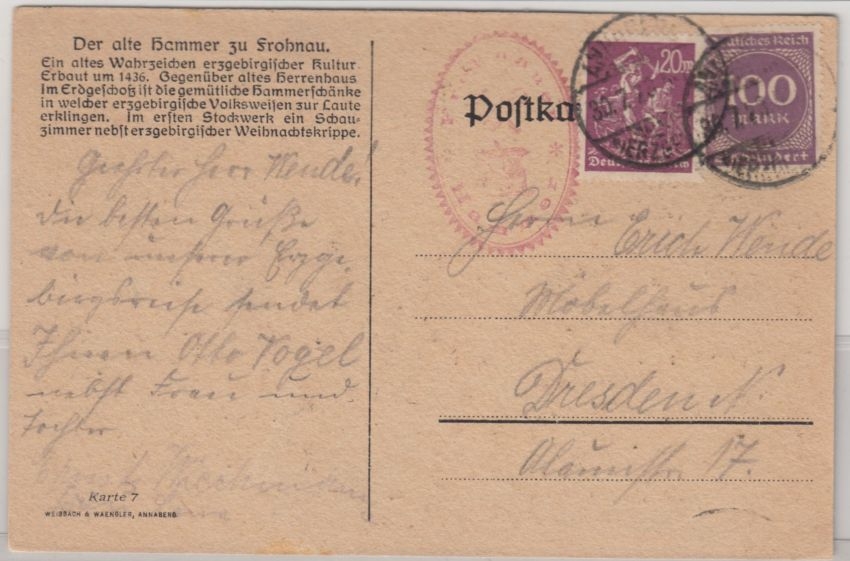 Der alte Hammer zu Frohnau.
Ein altes Wahrzeichen erzgebirgischer Kultur.
Erbaut um 1436. Gegenüber altes Herrenhaus
Im Erdgeschoß ist die gemütliche Hammerschänke
in welcher erzgebirgische Volksweisen zur Laute
erklingen. Im ersten Stockwerk ein Schau-
zimmer nebst erzgebirgischer Weihnachtskrippe.
Geehrter Herr Wende!
Die besten Grüße
von unserer Erzge-
birgsreise sendet
Ihnen Otto Vogel
nebst Frau und
Tochter
Karte 7
WEISBACH & WAENGLER, ANNABERG.
Postka
20m
Deutsches Reich
100
MARK
Herrn Erich Wende
Möbelhaus
Dresden N.
Alaunstr. 17.